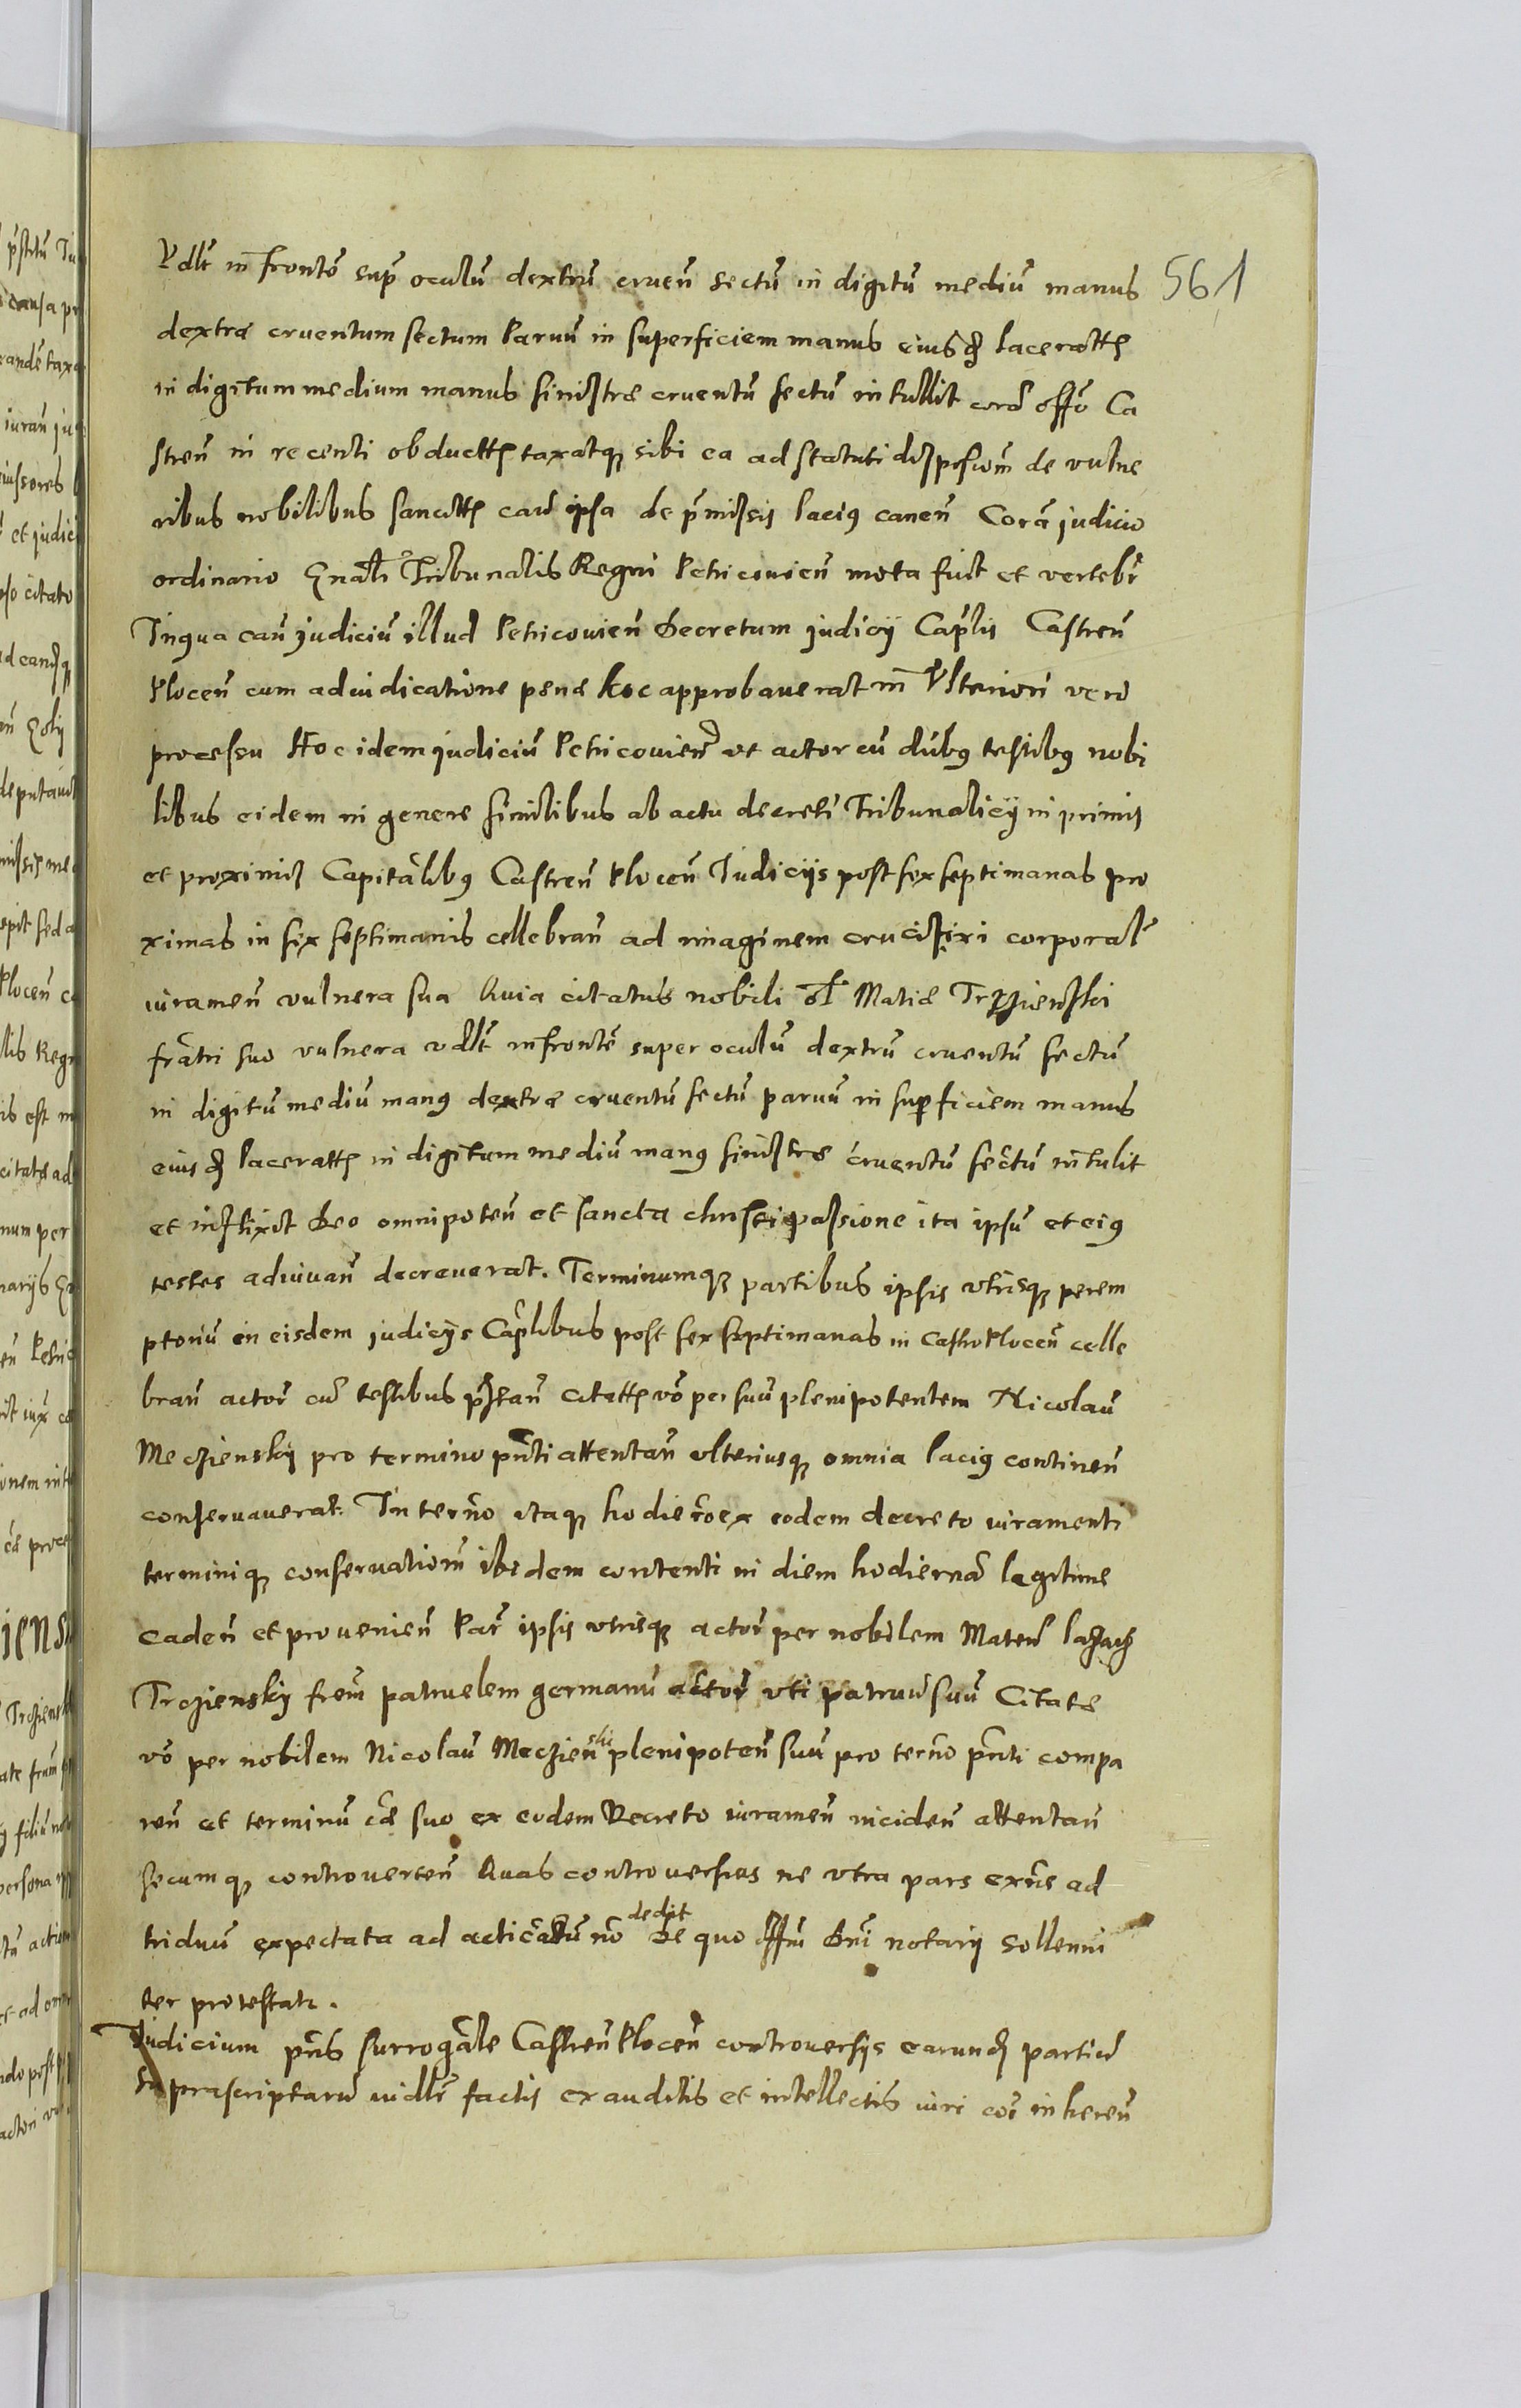 561
Vdlt in frontē sup̄ oculū dextrū cruen̄ sectū in digitū mediū manus
dextræ cruentum sectum paruū in superficiem manus eiusd̄ laceratt̄
in digitum medium manus sinistræ cruentū sectū intullit corā offō Ca
stren̄ in recenti obductt̄ taxatq sibi ea ad statuti disposiom̄ de vulne
ribus nobilibus sanctt̄ caū ipsa de p̄missis laciꝰ canen̄ Corā judicio
ordinario Gnal̄i Tribunalis Regni Petricouien̄ mota fuit et vertebr̄
In qua cau judiciū illud Petricouien̄ decretum judicij Cap̄lis Castren̄
Plocen̄ cum adiudicatione penæ hoc approbauerat in Vlteriori vero
processu Hoc idem judiciū Petricouien̄ vt actor cū dubꝰ testibꝰ nobi
libus eidem in genere similibus ab actu decreti Tribunalicij in primis
et proximis Capitālibꝰ Castren̄ Plocen̄ Judiciis post sex septimanas pro
ximas in six septimanis cellebran̄ ad imaginem crucifixi corporal̄
iuramen̄ vulnera sua Quia citatus nobili ol̄ Matiæ Trzzienski
fratri suo vulnera vdlt in frontē super oculū dextrū cruentū sectū
in digitū mediū manꝰ dextræ cruentū sectū paruū in sup̄ficiem manus
eiusd̄ laceratt̄ in digitum mediū manꝰ sinistræ cruentū sectū intulit
et inflixit Deo omnipoten̄ et sancta christi passione ita ipsū et eiꝰ
testes adiuuan̄ decreuerat. Terminumq partibus ipsis vtrisq perem
ptoriū in eisdem judicijs Cap̄libus post sex septimanas in Castro Plocen̄ celle
bran̄ actori cū testibus p̄stan̄ citatt̄ vō per suū plenipotentem Nicolaū
Mecziensky pro termino pn̄ti attentan̄ vlteriusq omnia laciꝰ continen̄
conseruauerat. In tern̄o itaq hodiern̄o ex eodem decreto iuramenti
terminiq conseruationi ibidem contenti in diem hodiernā legitime
caden̄ et prouenien̄ Par̄ ipsis vtrisq actor̄ per nobilem Mateū
Trcziensky frem̄ patruelem germanū actor̄ vti patruū suū Citatæ
vō per nobilem Nicolaū Meczienski plenipoten̄ suū pro tern̄o pn̄ti compa
ren̄ et terminū cæ suo ex eodem Decreto iuramen̄ inciden̄ attentan̄
secumq controuerten̄ Quas controuersias ne vtra pars exn̄c ad
triduū expectata ad acticatū nō dedit de quo offm̄ dn̄i notarij sollenni
ter protestatr.
Judicium pn̄s surrogāle Castren̄ Plocen̄ controuersijs earund̄ partiū
supraescriptarū vidlt factis exauditis et intellectis iuri coi inheren̄